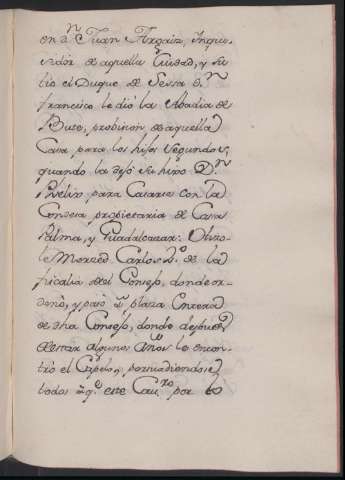 en Dn Juan Arganz, Inqui-
sidor de aquella Ciudad, y su
tio el Duque de Sessa Dn
francisco le dio la Abadia de
Rute, provision de aquella
Casa para los hijos segundos,
quando la dejó su hijo Dn
Felix para casarse con la
Condesa propietaria de Casa
Palma, y Guadalcazar: Hizo-
le Merced Carlos 2.º de la
fiscalia del Consejo, donde or-
denó, y pasó á plaza entera
de dho Consejo, donde despues
de estar algunos Años le encon-
tró el Capelo, persuadiendose
todos á qe. este Cavro. por lo